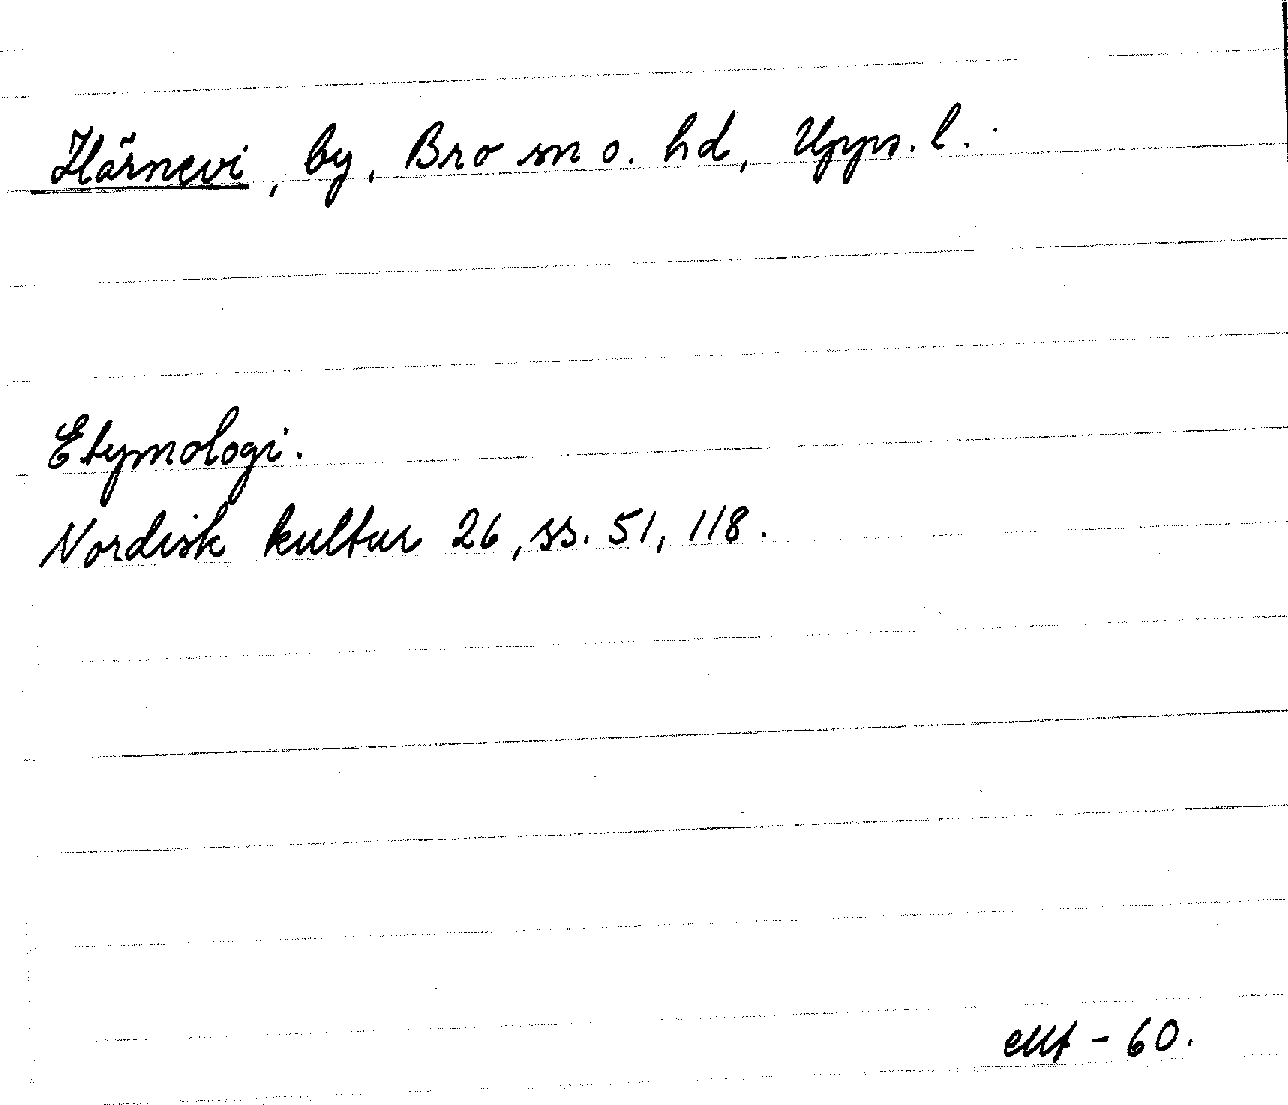 Härnevi, by, Bro sn o. hd, Upps. l.
Etymologi.
Nordisk kultur 26, ss. 51, 118.
- 60.